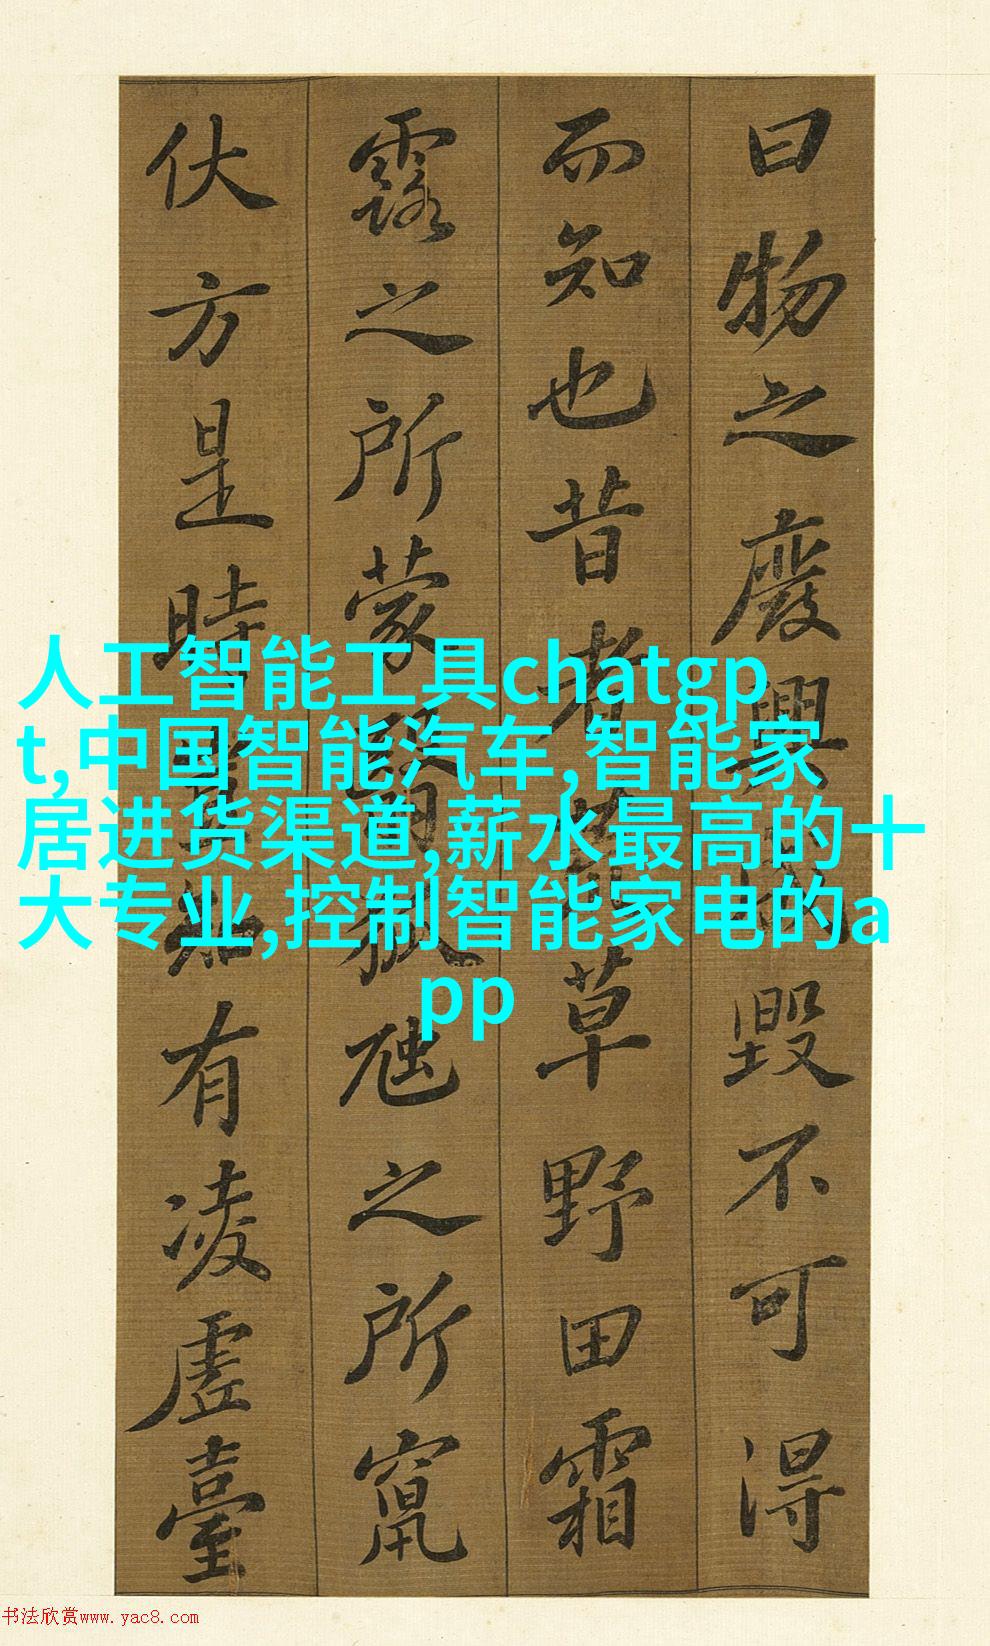 曰物之廢興成毀不可得
而知也昔者荒草野田霜
露之所蒙翳狐虺之所竄
伏方是時豈知有凌虛臺
人工智能工具chatgp
t,中国智能汽车,智能家
居进货渠道,薪水最高的十
大专业,控制智能家电的a
pp
书法欣赏www.yac8.com